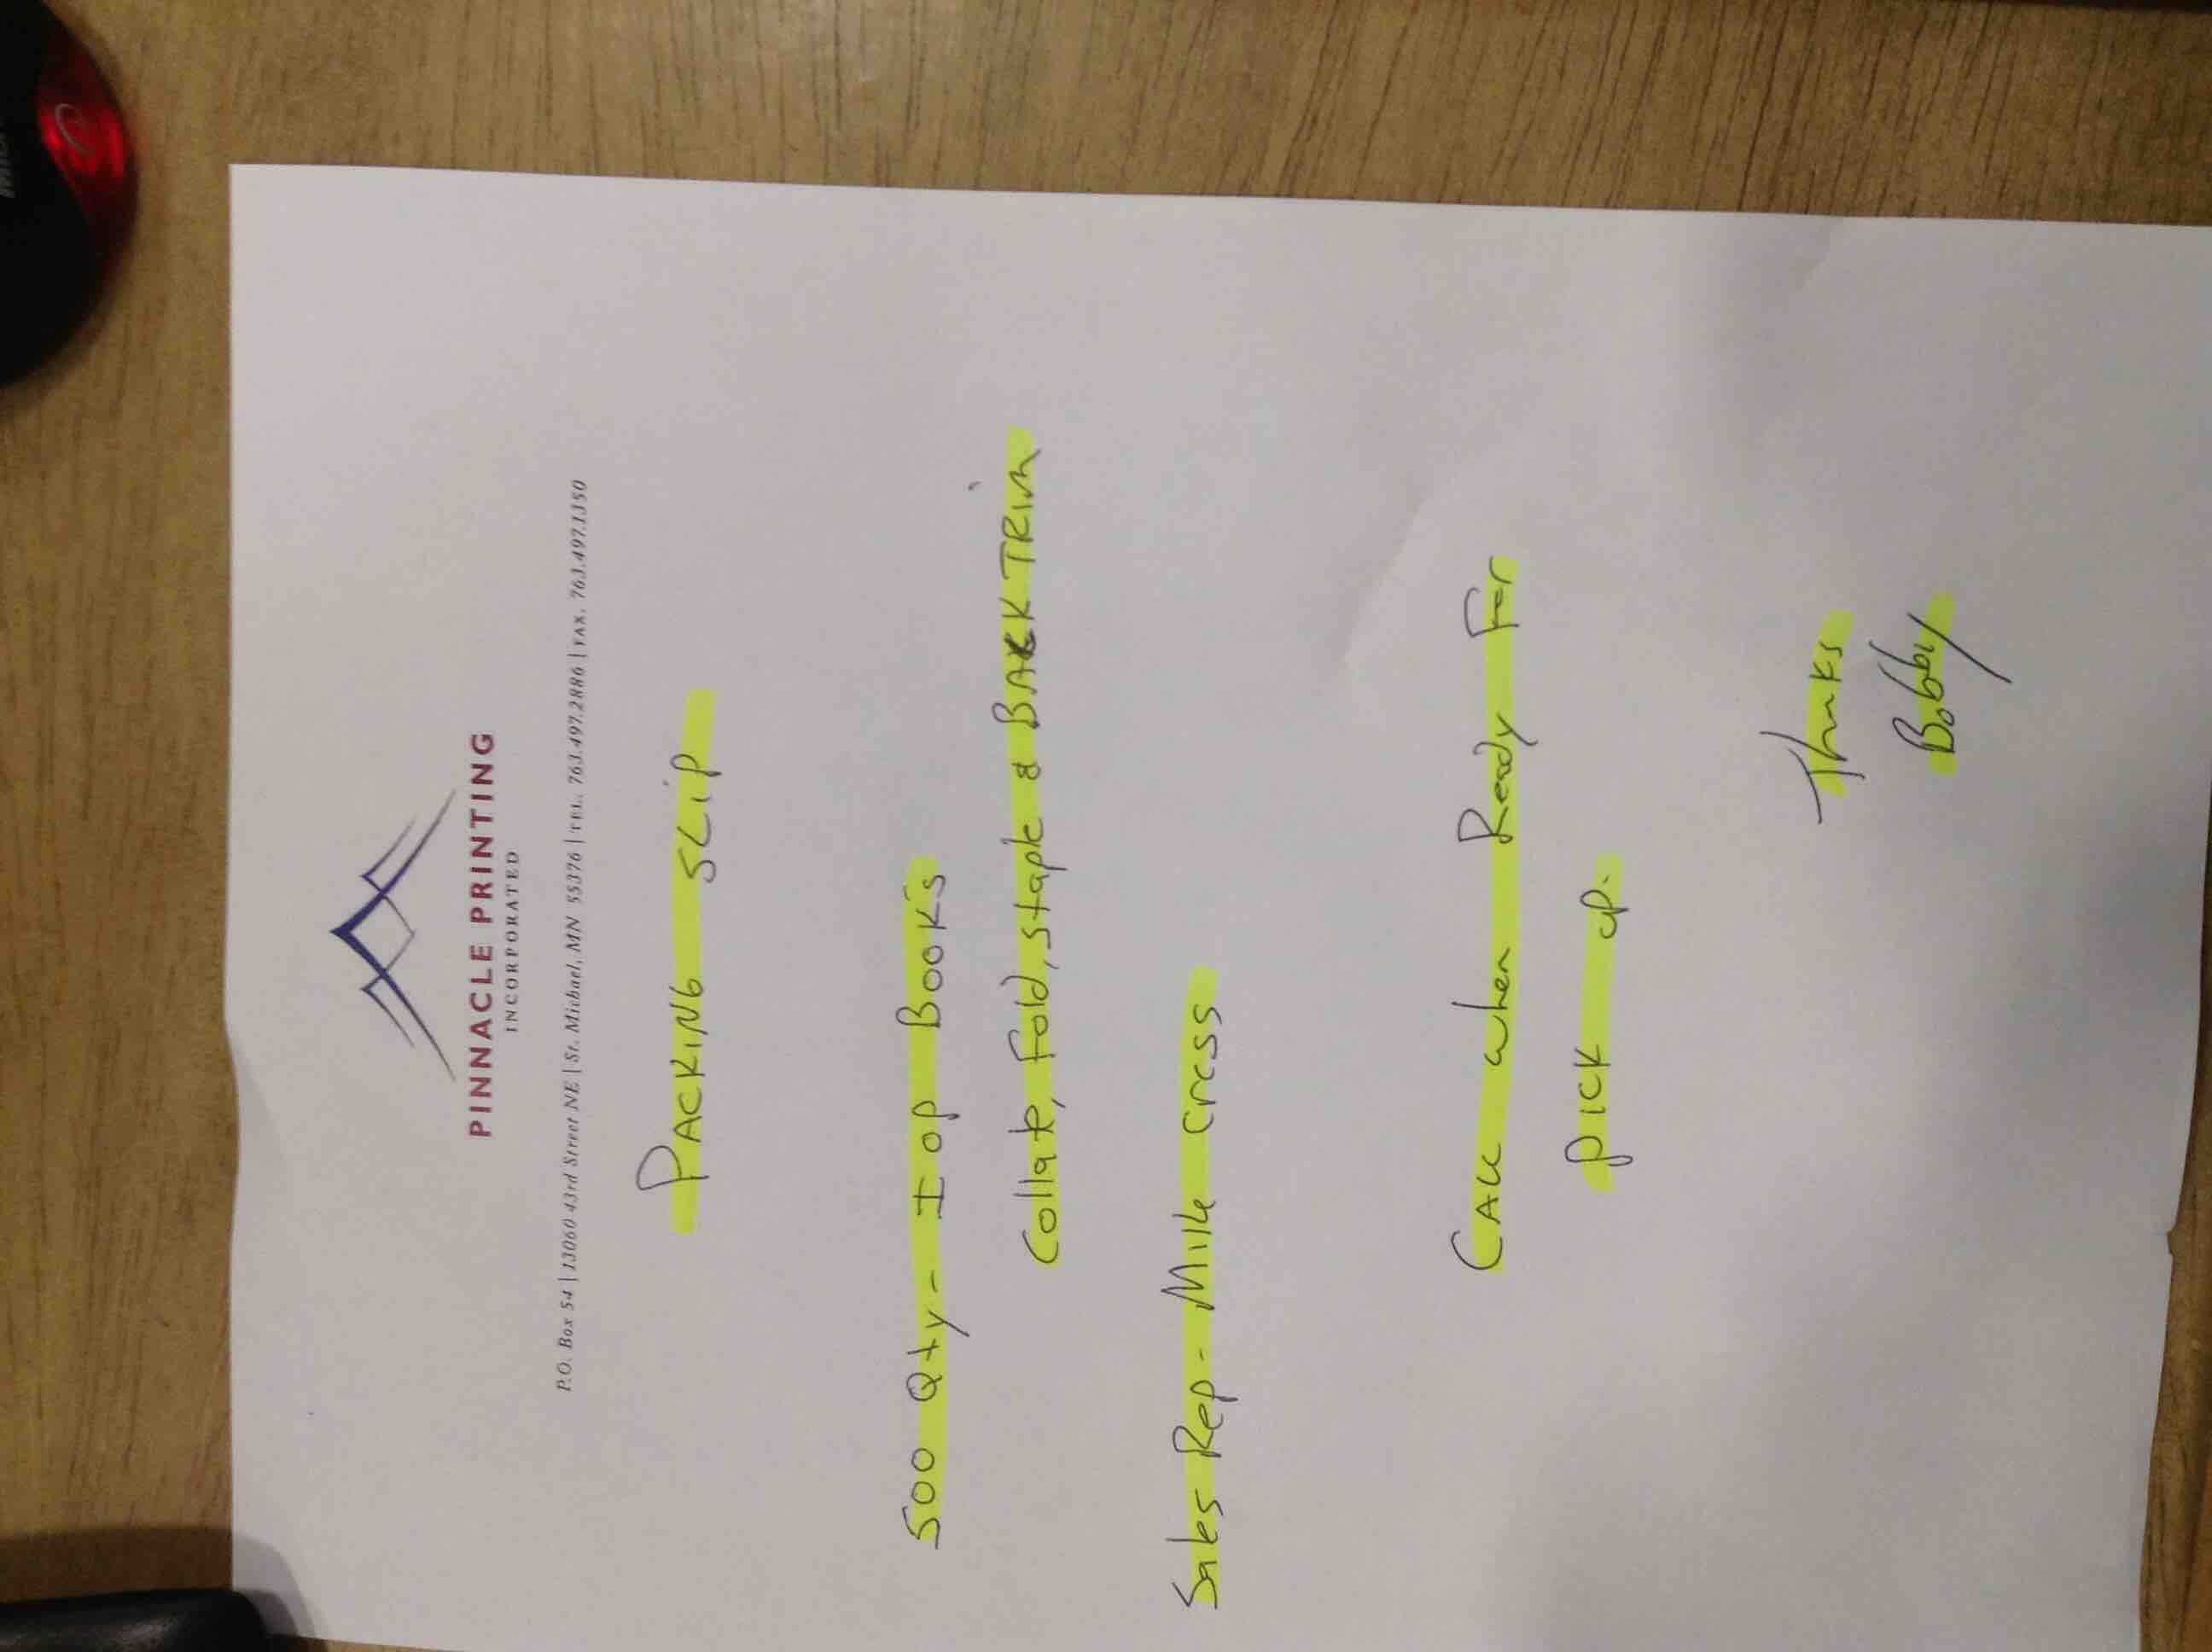 PINNACLE PRINTING
INCORPORATED
P.O. Box 54 | 13060 43rd Street NE | St. Michael, MN 55376 | TEL. 763.497.2886 | FAX. 763.497.1350
PACKING SLIP
500 Qty - I op Books
Collate, Fold, staple & BACK TRIM
Sales Rep - Mike Cress
CALL when Ready For
PICK up.
Thanks
Bobby